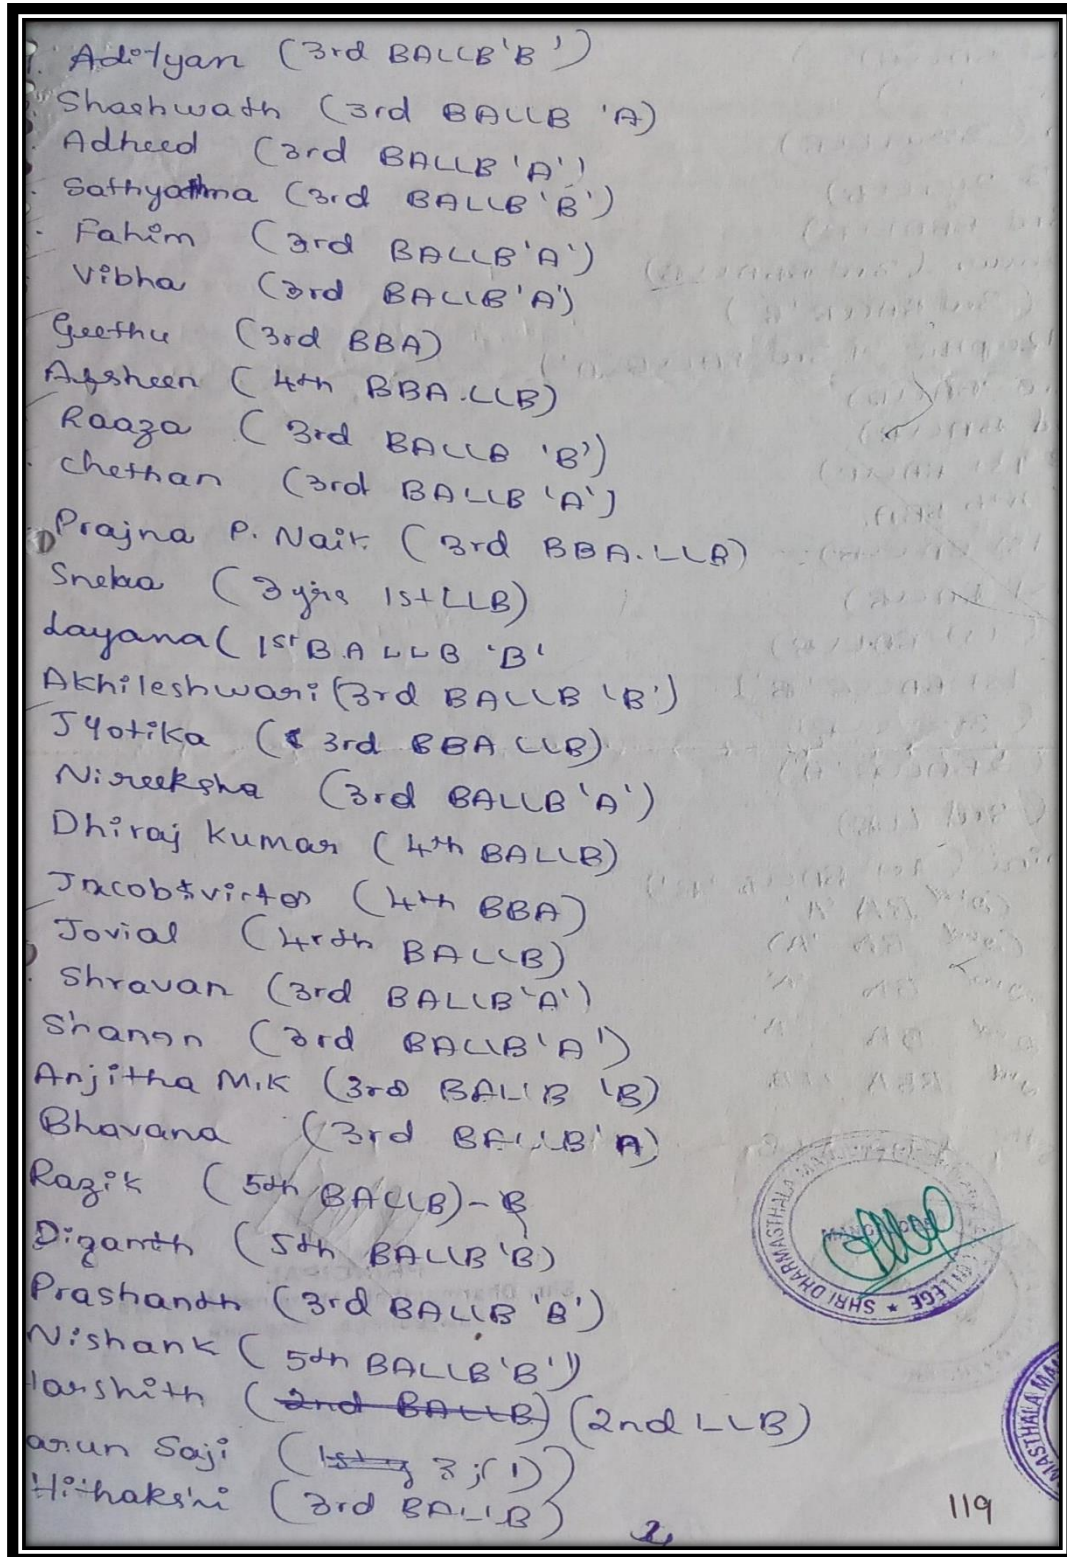 Adityan (3rd BALLB 'B')
Shashwath (3rd BALLB 'A)
Adheed (3rd BALLB 'A')
Sathyatma (3rd BALLB 'B')
Fahim (3rd BALLB 'A')
Vibha (3rd BALLB 'A')
Geethu (3rd BBA)
Afsheen (4th BBA.LLB)
Raaza (3rd BALLB 'B')
Chethan (3rd BALLB 'A')
Prajna P. Naik (3rd BBA.LLB)
Sneha (3 yrs 1st LLB)
Layana (1st BALLB 'B'
Akhileshwari (3rd BALLB 'B')
Jyotika (3rd BBA LLB)
Nireeksha (3rd BALLB 'A')
Dhiraj Kumar (4th BALLB)
Jacob (4th BBA)
Jovial (4rth BALLB)
Shravan (3rd BALLB 'A')
(3rd BALLB 'A')
Anjitha M.K (3rd BALLB 'B)
Bhavana (3rd BALLB 'A)
Razik (5th BALLB) - B
Diganth (5th BALLB 'B)
Prashanth (3rd BALLB 'B')
Nishank (5th BALLB 'B')
arshith (2nd BALLB) (2nd LLB)
arun Saji
Hithakshi (3rd BALLB)
SHRI DHARMASTHALA
COLLEGE
MASTHALA MAN
119